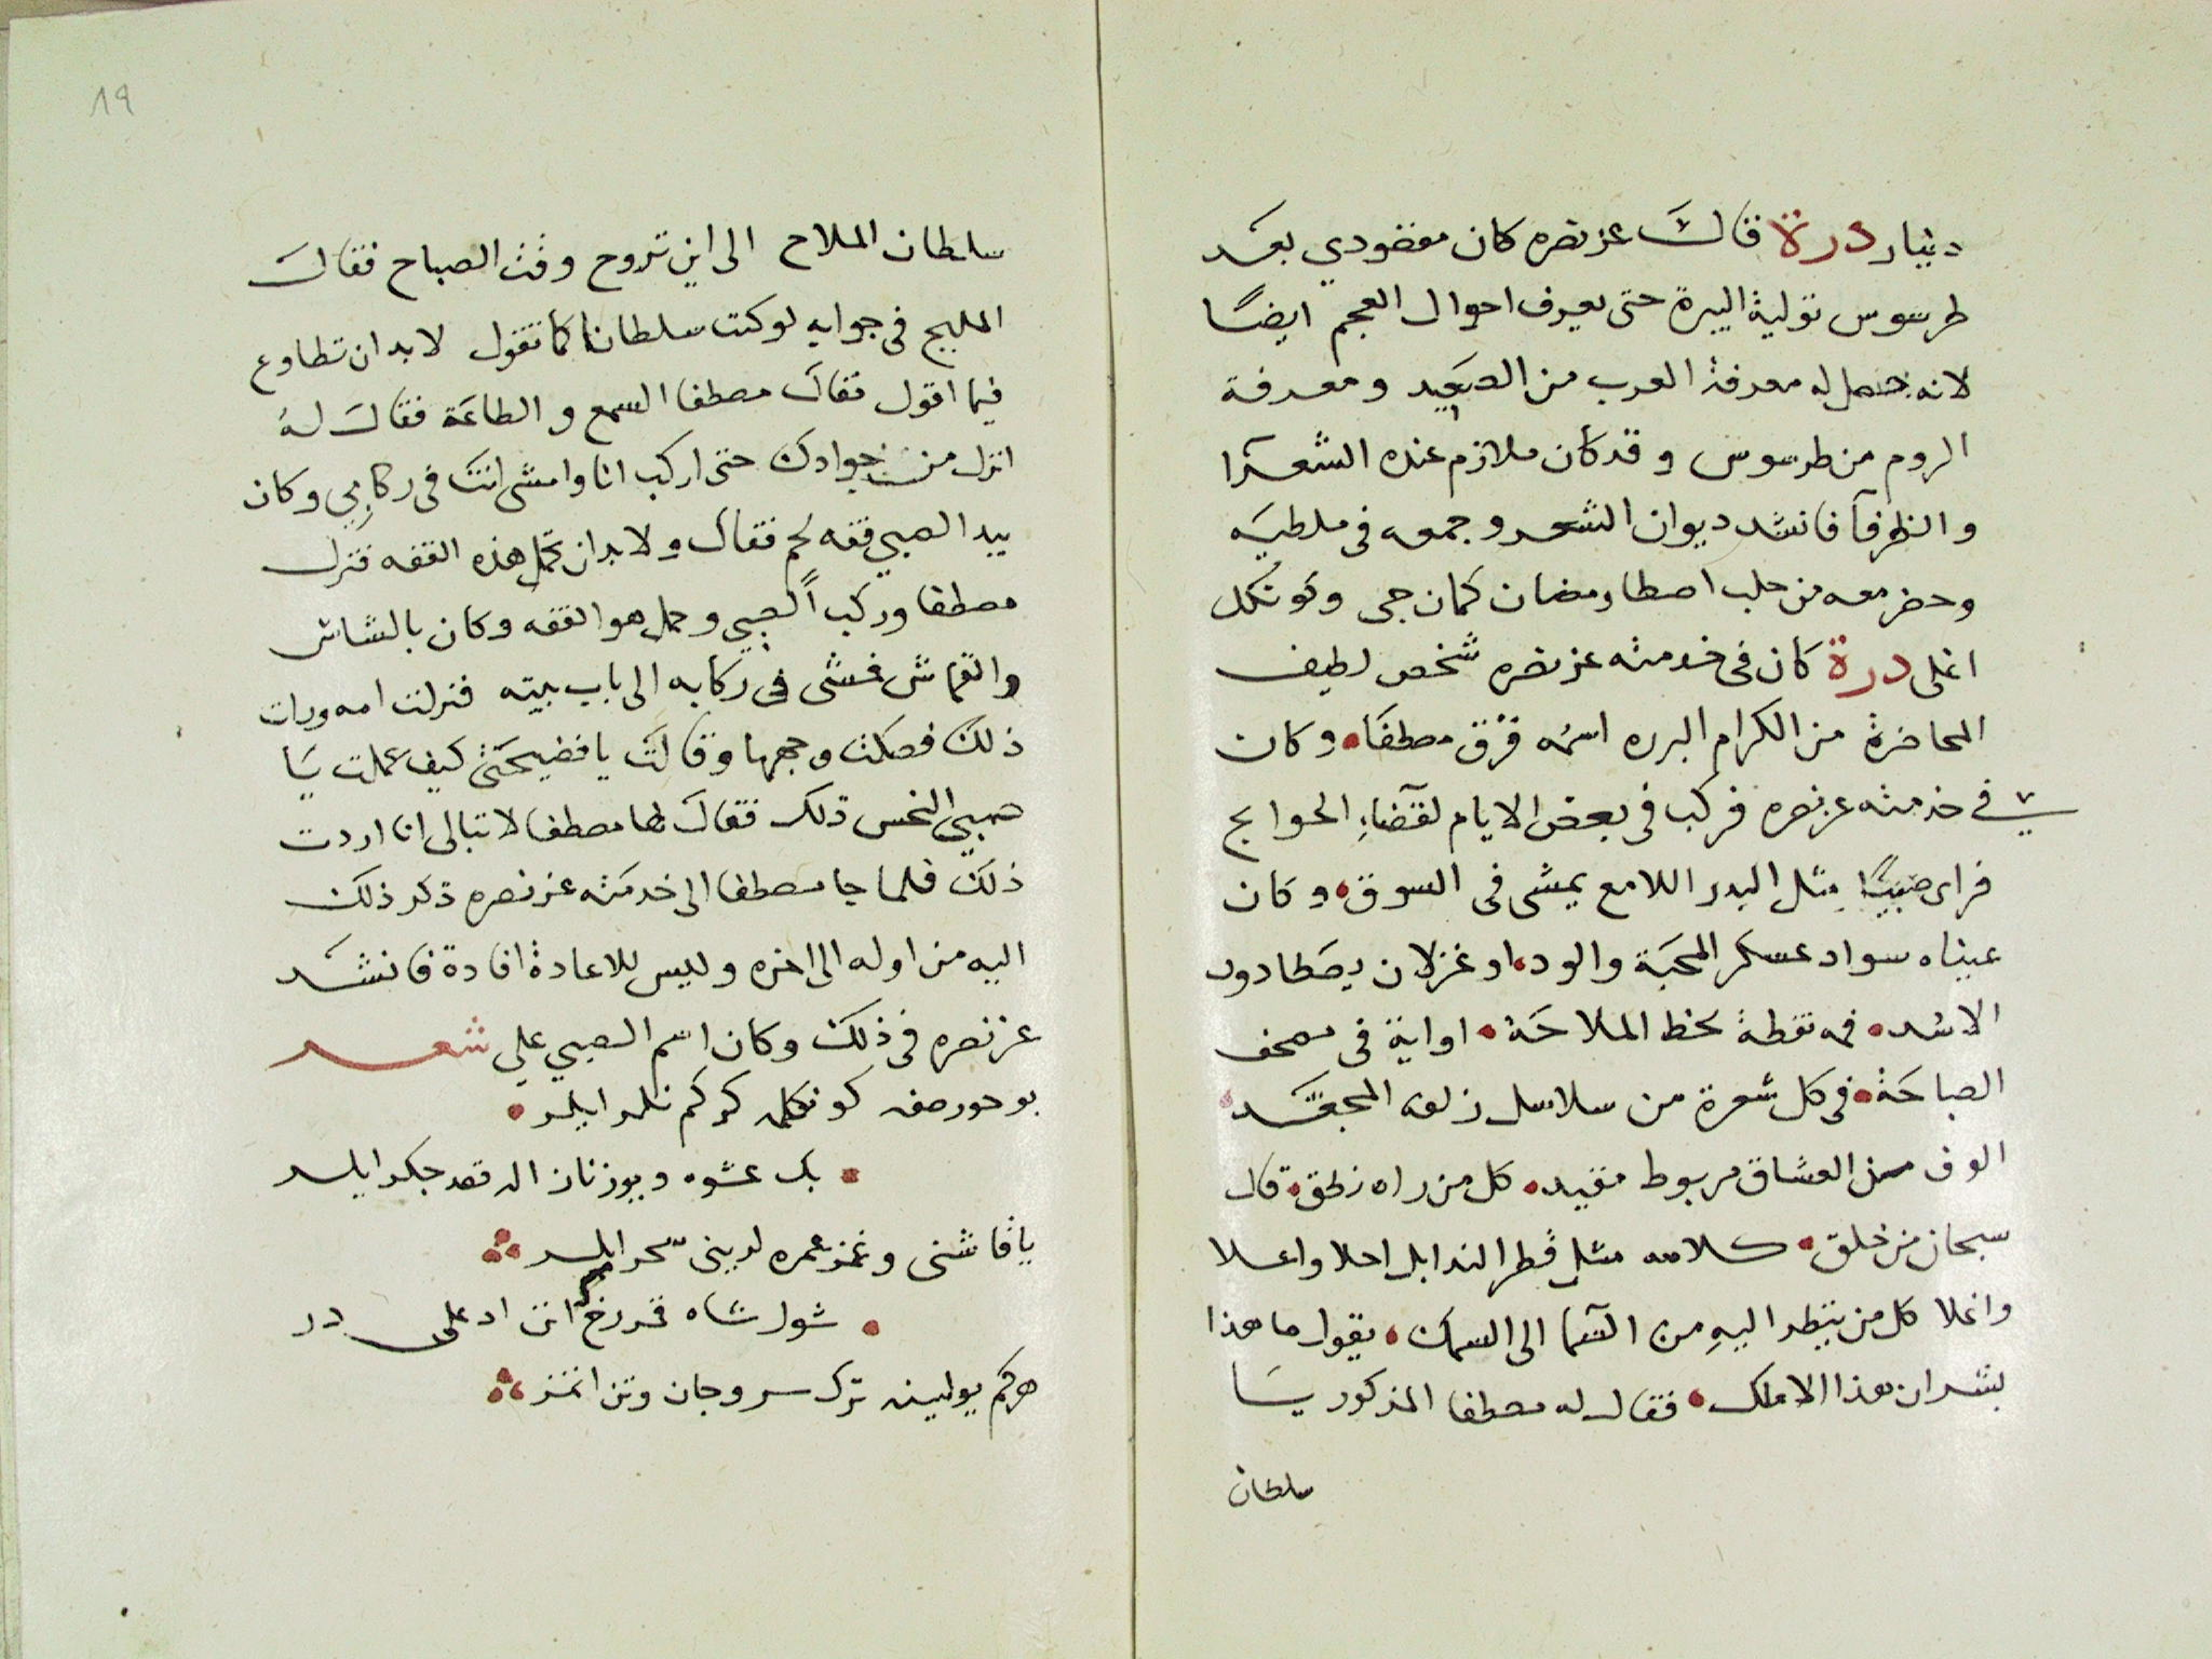 دينار درة قال عز نصره كان مقصودي بعد
طرسوس تولية البيرة حتى يعرف احوال العجم ايضًا
لانه حصل له معرفة العرب من الصعيد ومعرفة
الروم من طرسوس وقد كان ملازم عنده الشعرا
والظرفآ فانشد ديوان الشعر وجمعه في ملطيه
وحضر معه من حلب اصطا رمضان كمان جى وكوتكل
اغلى درة كان فى خدمته عز نصره شخص لطيف
المحاضرة من الكرام البرره اسمه قرق مصطفا وكان
في خدمته عز نصره فركب فى بعض الايام لقضآء الحوايج
فراى صبيًا مثل البدر اللامع يمشى فى السوق وكان
عيناه سواد عسكر المحبة والود او غزلان يصطادون
الاسد فمه نقطة بخط الملاحة او اية فى مصحف
الصباحة فى كل شعرة من سلاسل زلفه المجعد
الوف من العشاق مربوط مقيد كل من راه زلق قال
سبحان من خلق كلامه مثل قطر الندا بل احلا واعلا
واغلا كل من ينظر اليه من السمآ الى السمك يقول ما هذا
بشر ان هذا الا ملك فقال له مصطفا المذكور يا
سلطان
19
سلطان الملاح الى اين تروح وقت الصباح فقال
المليح فى جوابه لو كنت سلطانا كما تقول لا بد ان تطاوع
فيما اقول فقال مصطفا السمع والطاعة فقال له
انزل من جوادك حتى اركب انا وامشى انت فى ركابي وكان
بيد الصبي قفه لحم فقال ولا بد ان تحمل هذه القفه فنزل
مصطفا وركب الصبي وحمل هو القفه وكان بالشاش
والقماش فمشى فى ركابه الى باب بيته فنزلت امه ورات
ذلك فصكت وجهها وقالت يا فضيحتى كيف عملت يا
صبيي النحس ذلك فقال لها مصطفا لا تبالى انا اردت
ذلك فلما جا مصطفا الى خدمته عز نصره ذكر ذلك
اليه من اوله الى اخره وليس للاعادة افادة فانشد
عز نصره فى ذلك وكان اسم الصبي علي شعر
بو حور صفه كو كلمه كركم نلر ايلر
بك عشوه وبيوز ناز اله قصد جكر ايلر
ياقاشى وغمز عمره لو بينى سحر ايلر
شول شاه قمر رخ اتى اد على در
هركم يولينه ترك سر وجان وتن اتمز